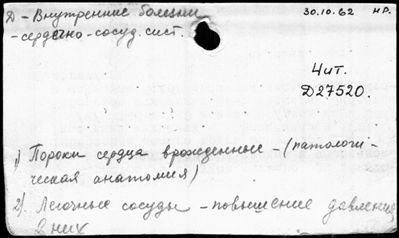 Д - Внутренние болезни 30.10.62 нр.
-сердечно-сосуд. сист.
Чит.
Д27520.
1) Пороки сердца врожденные - (патологи-
ческая анатомия)
2) Легочные сосуды - повышение давления
в них